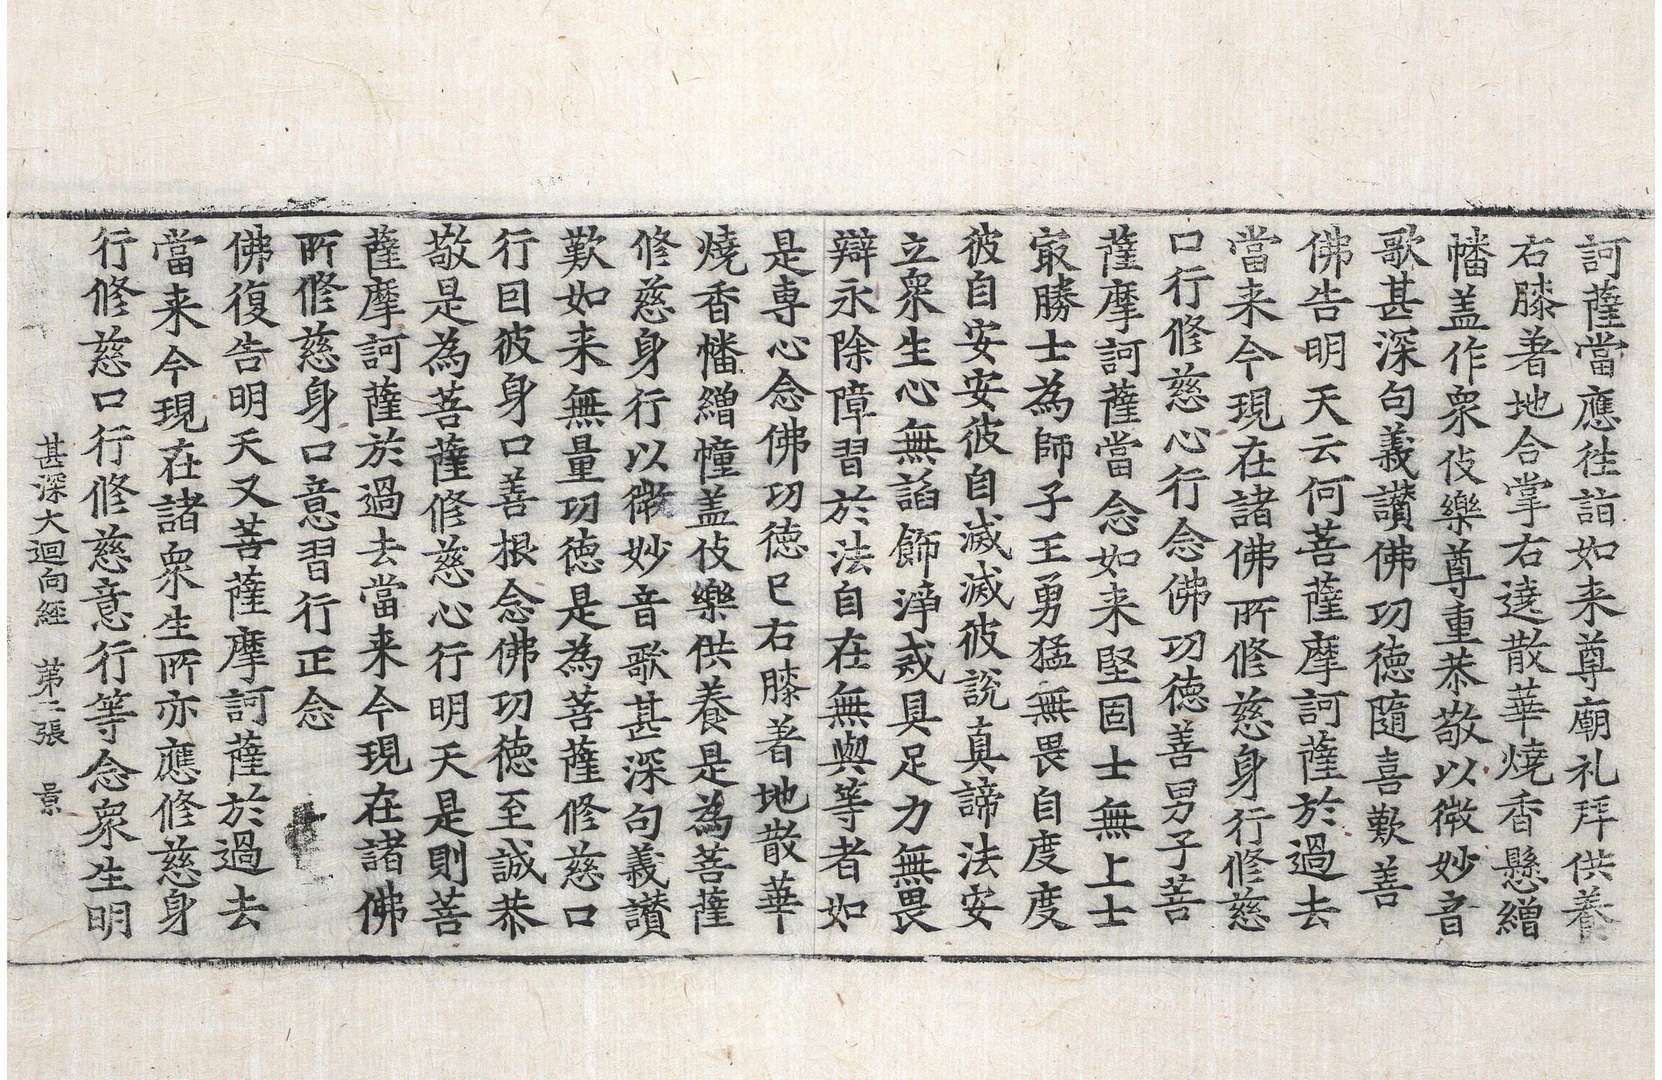 訶薩當應往詣如来尊廟礼拜供養
右膝著地合掌右遶散華燒香懸繒
幡盖作衆伎樂尊重恭敬以微妙音
歌甚深句義讚佛功德隨喜歎善
佛告明天云何菩薩摩訶薩於過去
當来今現在諸佛所修慈身行修慈
口行修慈心行念佛功德善男子菩
薩摩訶薩當念如来堅固士無上士
㝡勝士為師子王勇猛無畏自度度
彼自安安彼自滅滅彼說真諦法安
立衆生心無諂飾淨戒具足力無畏
辯永除障習於法自在無與等者如
是專心念佛功德已右膝著地散華
燒香幡繒幢盖伎樂供養是為菩薩
修慈身行以微妙音歌甚深句義讃
歎如来無量功德是為菩薩修慈口
行回彼身口善根念佛功德至誠恭
敬是為菩薩修慈心行明天是則菩
薩摩訶薩於過去當来今現在諸佛
所修慈身口意習行正念
佛復告明天又菩薩摩訶薩於過去
當来今現在諸衆生所亦應修慈身
行修慈口行修慈意行等念衆生明
甚深大迴向經 第二張 景